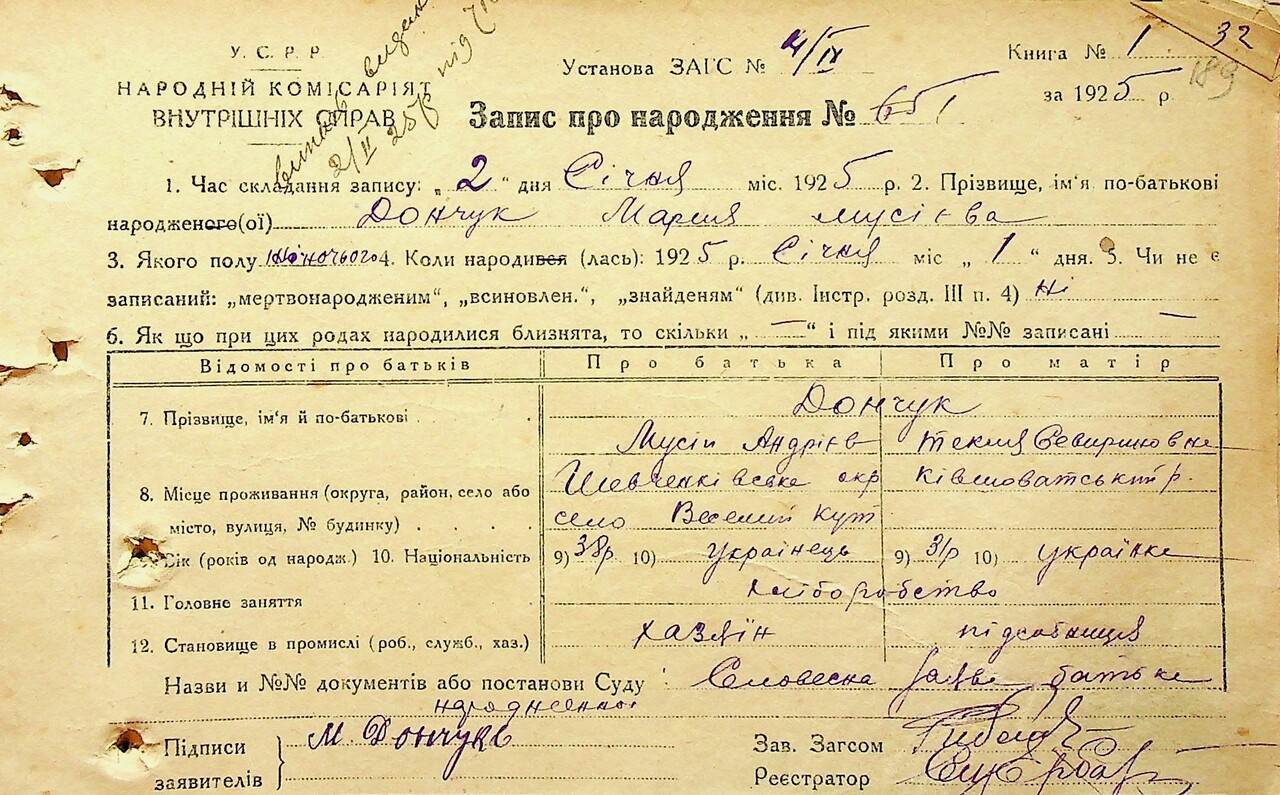 У. С. Р. Р.
НАРОДНІЙ КОМІСАРІЯТ
ВНУТРІШНІХ СПРАВ
2/II 25 р під
Установа ЗАГС № 4/IV
Книга № 1
32
189
за 1925 р.
Запис про народження №
1. Час складання запису: „2“ дня Січня міс. 1925 р. 2. Прізвище, ім'я по-батькові
народженого(ої) Дончук Мария Мусієва
3. Якого полу жіночього 4. Коли народився (лась): 1925 р. Січня міс „1“ дня. 5. Чи не є
записаний: „мертвонародженим“, „всиновлен.“, „знайденям“ (див. Інстр. розд. III п. 4) ні
6. Як що при цих родах народилися близнята, то скільки „—“ і під якими №№ записані —
Відомості про батьків Про батька Про матір
7. Прізвище, ім'я й по-батькові . . Дончук
Мусій Андрієв Текля Севериновна
8. Місце проживання (округа, район, село або Шевченківська окр Ківшоватський р.
місто, вулиця, № будинку) . . . . село Веселий Кут
9. Вік (років од народж.) 10. Національність 9) 38р 10) українець 9) 31р 10) українка
11. Головне заняття хліборобство
12. Становище в промислі (роб., служб., хаз.) хазяїн підсобниця
Назви и №№ документів або постанови Суду : Словесна заява батька
народженної
Підписи заявителів М Дончукъ
Зав. Загсом
Реєстратор